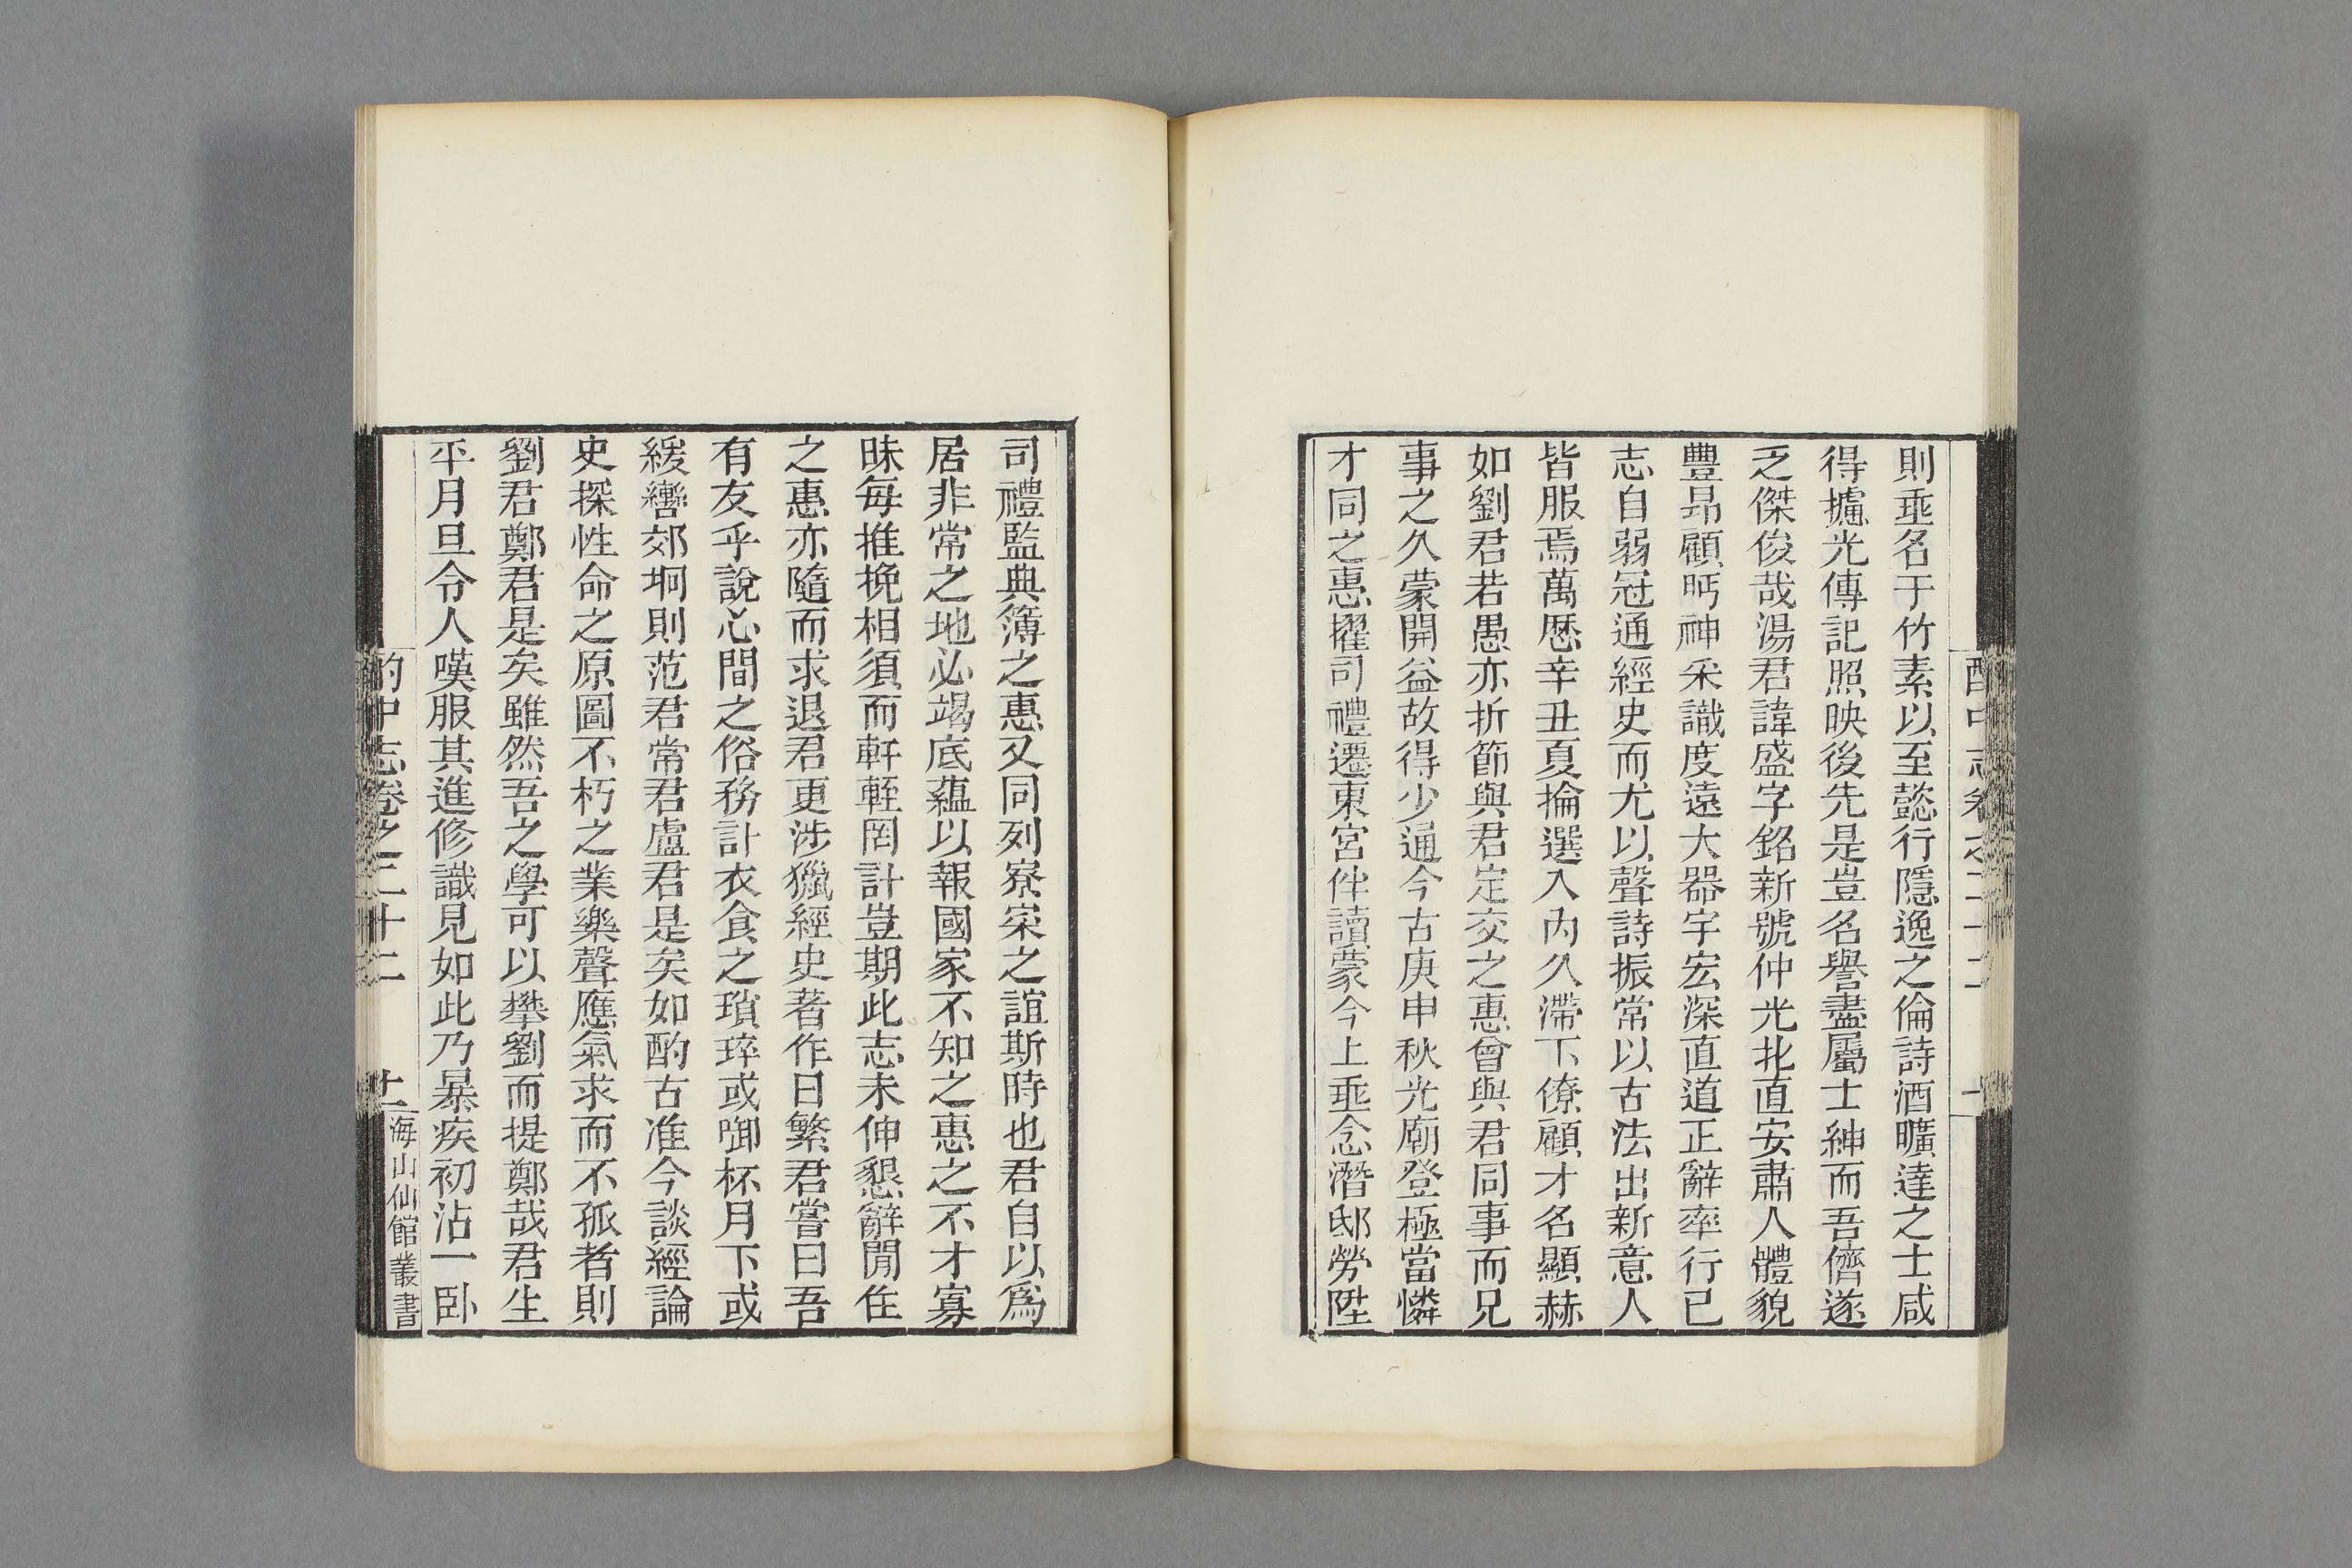 則垂名于竹素以至懿行隱逸之倫詩酒曠達之士咸
得攄光傳記照映後先是豈名譽盡屬士紳而吾儕遂
乏傑俊哉湯君諱盛字銘新號仲光北直安肅人體貌
豐昻顧眄神采識度遠大器宇宏深直道正辭率行已
志自弱冠通經史而尤以聲詩振常以古法出新意人
皆服焉萬厯辛丑夏掄選入內久滯下僚顧才名顯赫
如劉君若愚亦折節與君定交之惠曾與君同事而兄
事之久蒙開益故得少通今古庚申秋光廟登極當憐
才同之惠擢司禮遷東宮伴讀蒙今上垂念潛邸勞陞
司禮監典簿之惠又同列寮寀之誼斯時也君自以爲
居非常之地必竭底蘊以報國家不知之惠之不才寡
昧每推挽相須而軒輊罔計豈期此志未伸懇辭閒住
之惠亦隨而求退君更涉獵經史著作日繁君嘗曰吾
有友乎說心間之俗務計衣食之瑣琗或啣杯月下或
緩轡郊坰則范君常君盧君是矣如酌古准今談經論
史探性命之原圖不朽之業樂聲應氣求而不孤者則
劉君鄭君是矣雖然吾之學可以攀劉而提鄭哉君生
平月旦令人嘆服其進修識見如此乃暴疾初沾一卧
酌中志卷之二十二
海山仙館叢書